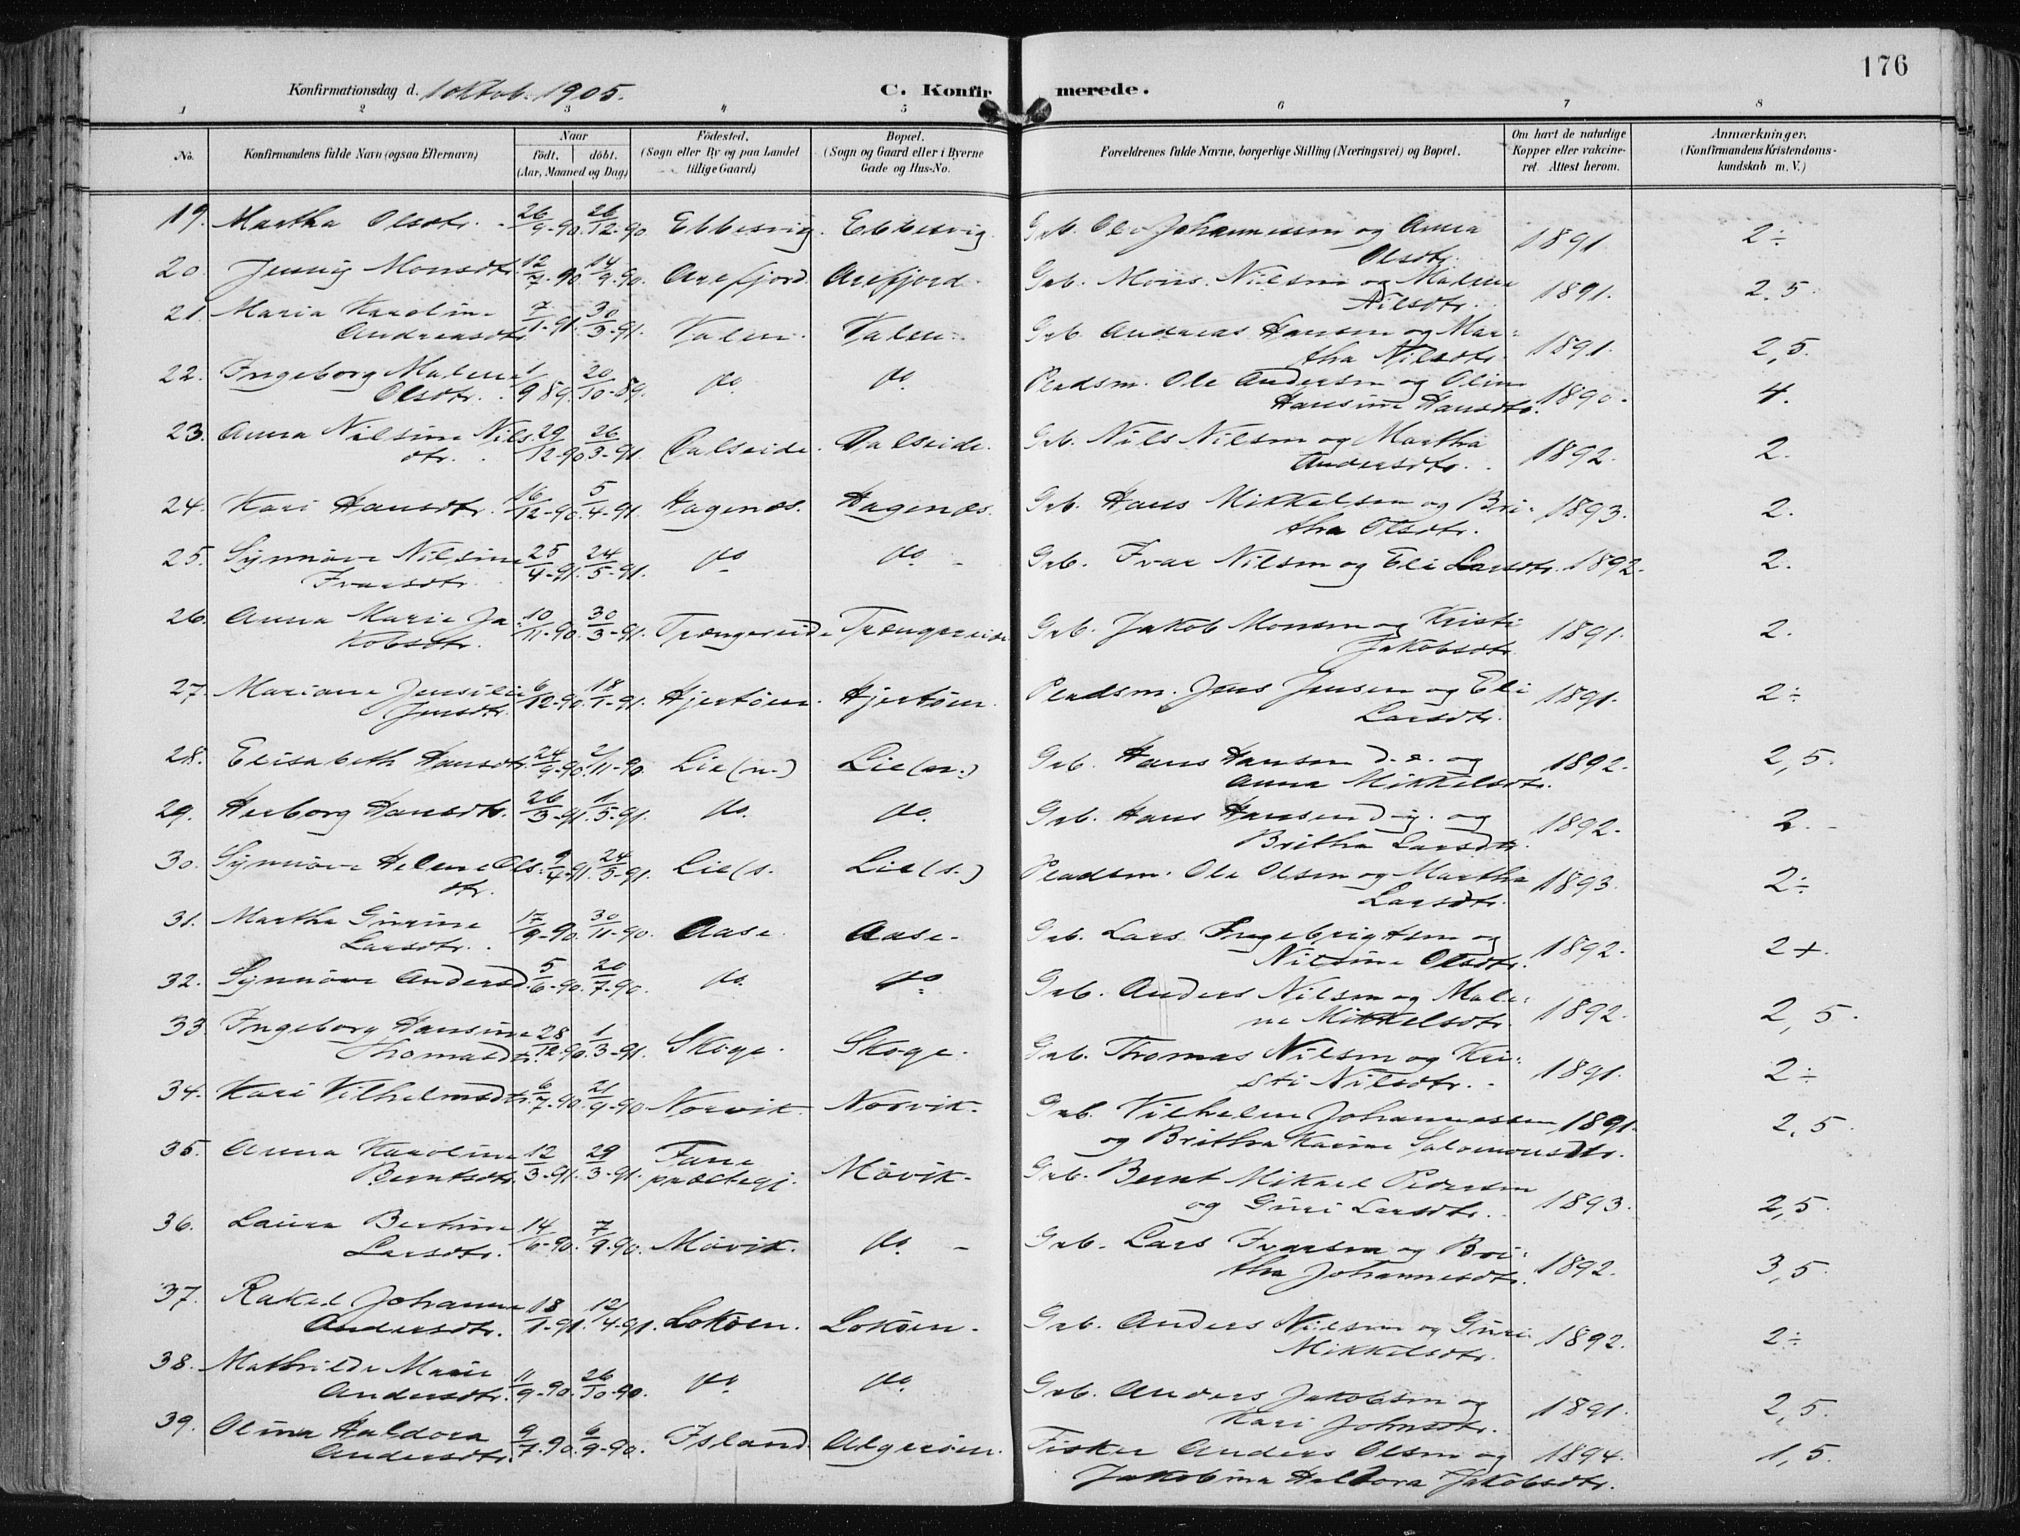 176
Konfirmationsdag d. 1 oktob. 1905.
C. Konfirmerede.
1 2 3 4 5 6 7 8
No.
Konfirmandens fulde Navn (ogsaa Efternavn)
Naar
født. døbt.
(Aar, Maaned og Dag)
Fødested.
(Sogn eller By og paa Landet
tillige Gaard)
Bopæl.
(Sogn og Gaard eller i Byerne
Gade og Hus-No.
Forældrenes fulde Navne, borgerlige Stilling (Næringsvei) og Bopæl.
Om havt de naturlige
Kopper eller vakcine-
ret. Attest herom.
Anmærkninger.
(Konfirmandens Kristendoms-
kundskab m. V.)
19. Martha Olsdtr. 26/9-90. 26/12-90. Ebbesvig. Ebbesvig. Grb. Ole Johannessen og Anna 1891. 2÷
Olsdtr.
20. Jenny Monsdtr. 12/7-90. 14/9-90. Arefjord. Arefjord. Grb. Mons Nilsen og Malene 1891. 2,5.
Nilsdtr.
21. Maria Karoline 7/1-91. 30/3-91. Valen. Valen. Grb. Andreas Hansen og Mar- 1891. 2,5.
Andreasdtr. tha Nilsdtr.
22. Ingeborg Malene 1/9 89. 20/10-89. do. do. Pladsm. Ole Andersen og Oline 1890. 4.
Olsdtr. Hansine Hansdtr.
23. Anna Nilsine Nils- 29/12-90. 26/3-91. Dalseide. Dalseide. Grb. Nils Nilsen og Martha 1892. 2.
dtr. Andersdtr.
24. Kari Hansdtr. 16/12-90. 5/4-91. Hagenæs. Hagenæs. Grb. Hans Mikkelsen og Bri- 1893. 2.
tha Olsdtr.
25. Synnøve Nilsine 25/4-91. 24/5-91. do. do. Grb. Ivar Nilsen og Eli Larsdtr. 1892. 2.
Ivarsdtr.
26. Anna Marie Ja- 10/11-90. 30/3-91. Trængereide Trængereide Grb. Jakob Monsen og Kristi 1891. 2.
kobsdtr. Jakobsdtr.
27. Mariane Jensine 6/12-90. 18/1-91. Hjertøen. Hjertøen. Pladsm. Jens Jensen og Eli 1891. 2÷
Jensdtr. Larsdtr.
28. Elisabeth Hansdtr. 24/9-90. 2/11-90. Lie (n.) Lie (n.) Grb. Hans Hansen d. e. og 1892. 2,5.
Anna Mikkelsdtr.
29. Herborg Hansdtr. 26/3-91. 1/5-91. do. do. Grb. Hans Hansen d. y. og 1892. 2.
Britha Larsdtr.
30. Synnøve Helene Ols- 9/4-91. 24/5-91. Lie (s. Lie (s.) Pladsm. Ole Olsen og Martha 1893. 2÷
dtr. Larsdtr.
31. Martha Gurine 17/9-90. 30/11-90. Aase. Aase. Grb. Lars Ingebrigtsen og 1892. 2+.
Larsdtr. Nilsine Olsdtr.
32. Synnøve Andersd. 5/6-90. 20/7-90. do. do. Grb. Anders Nilsen og Male- 1892. 2,5.
ne Mikkelsdtr.
33 Ingeborg Hansine 28/12-90. 1/3-91. Skoge. Skoge. Grb. Thomas Nilsen og Kri- 1891. 2÷
Thomasdtr. sti Nilsdtr.
34. Kari Vilhelmsdtr. 6/7-90. 21/9-90 Norvik. Norvik. Grb. Vilhelm Johannessen 1891. 2,5.
og Britha Karine Salomonsdtr.
35. Anna Karoline 12/3-91. 29/3-91. Fane Møvik. Grb. Bernt Mikael Pedersen 1893. 2,5.
Berntsdtr. præstegj. og Guri Larsdtr.
36. Laura Bertine 14/6-90. 7/9-90. Møvik. do. Grb. Lars Ivarsen og Bri- 1892. 3,5.
Larsdtr. tha Johannesdtr.
37. Rakel Johanne 18/1-91. 12/4-91. Lokøen. Lokøen. Grb. Anders Nilsen og Guri 1892. 2÷
Andersdtr. Mikkelsdtr.
38. Mathilde Marie 11/9-90. 26/10-90. do. do. Grb. Anders Jakobsen og 1891. 2,5.
Andersdtr. Kari Johnsdtr.
39. Olina Haldora 9/7-90. 6/9-90. Island Algerøen. Fisker Anders Olsen og 1894. 1,5.
Andersdtr. Jakobina Haldora Jakobsdtr.